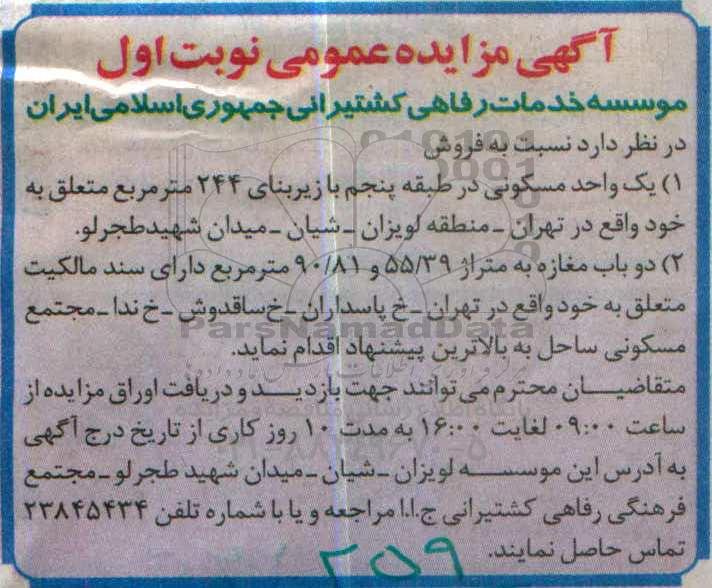 آگهی مزایده عمومی نوبت اول
موسسه خدمات رفاهی کشتیرانی جمهوری اسلامی ایران
در نظر دارد نسبت به فروش
۱) یک واحد مسکونی در طبقه پنجم با زیربنای ۲۴۴ مترمربع متعلق به
خود واقع در تهران ـ منطقه لویزان ـ شیان ـ میدان شهید طجرلو.
۲) دو باب مغازه به متراژ ۵۵/۳۹ و ۹۰/۸۱ مترمربع دارای سند مالکیت
متعلق به خود واقع در تهران ـ خ پاسداران ـ خ ساقدوش ـ خ ندا ـ مجتمع
ParsNamadData
مسکونی ساحل به بالاترین پیشنهاد اقدام نماید.
متقاضیان محترم می توانند جهت بازدید و دریافت اوراق مزایده از
ساعت ۰۹:۰۰ لغایت ۱۶:۰۰ به مدت ۱۰ روز کاری از تاریخ درج آگهی
به آدرس این موسسه لویزان ـ شیان ـ میدان شهید طجرلو ـ مجتمع
فرهنگی رفاهی کشتیرانی ج.ا.ا مراجعه و یا با شماره تلفن ۲۳۸۴۵۴۳۴
تماس حاصل نمایند.
۲۵۹